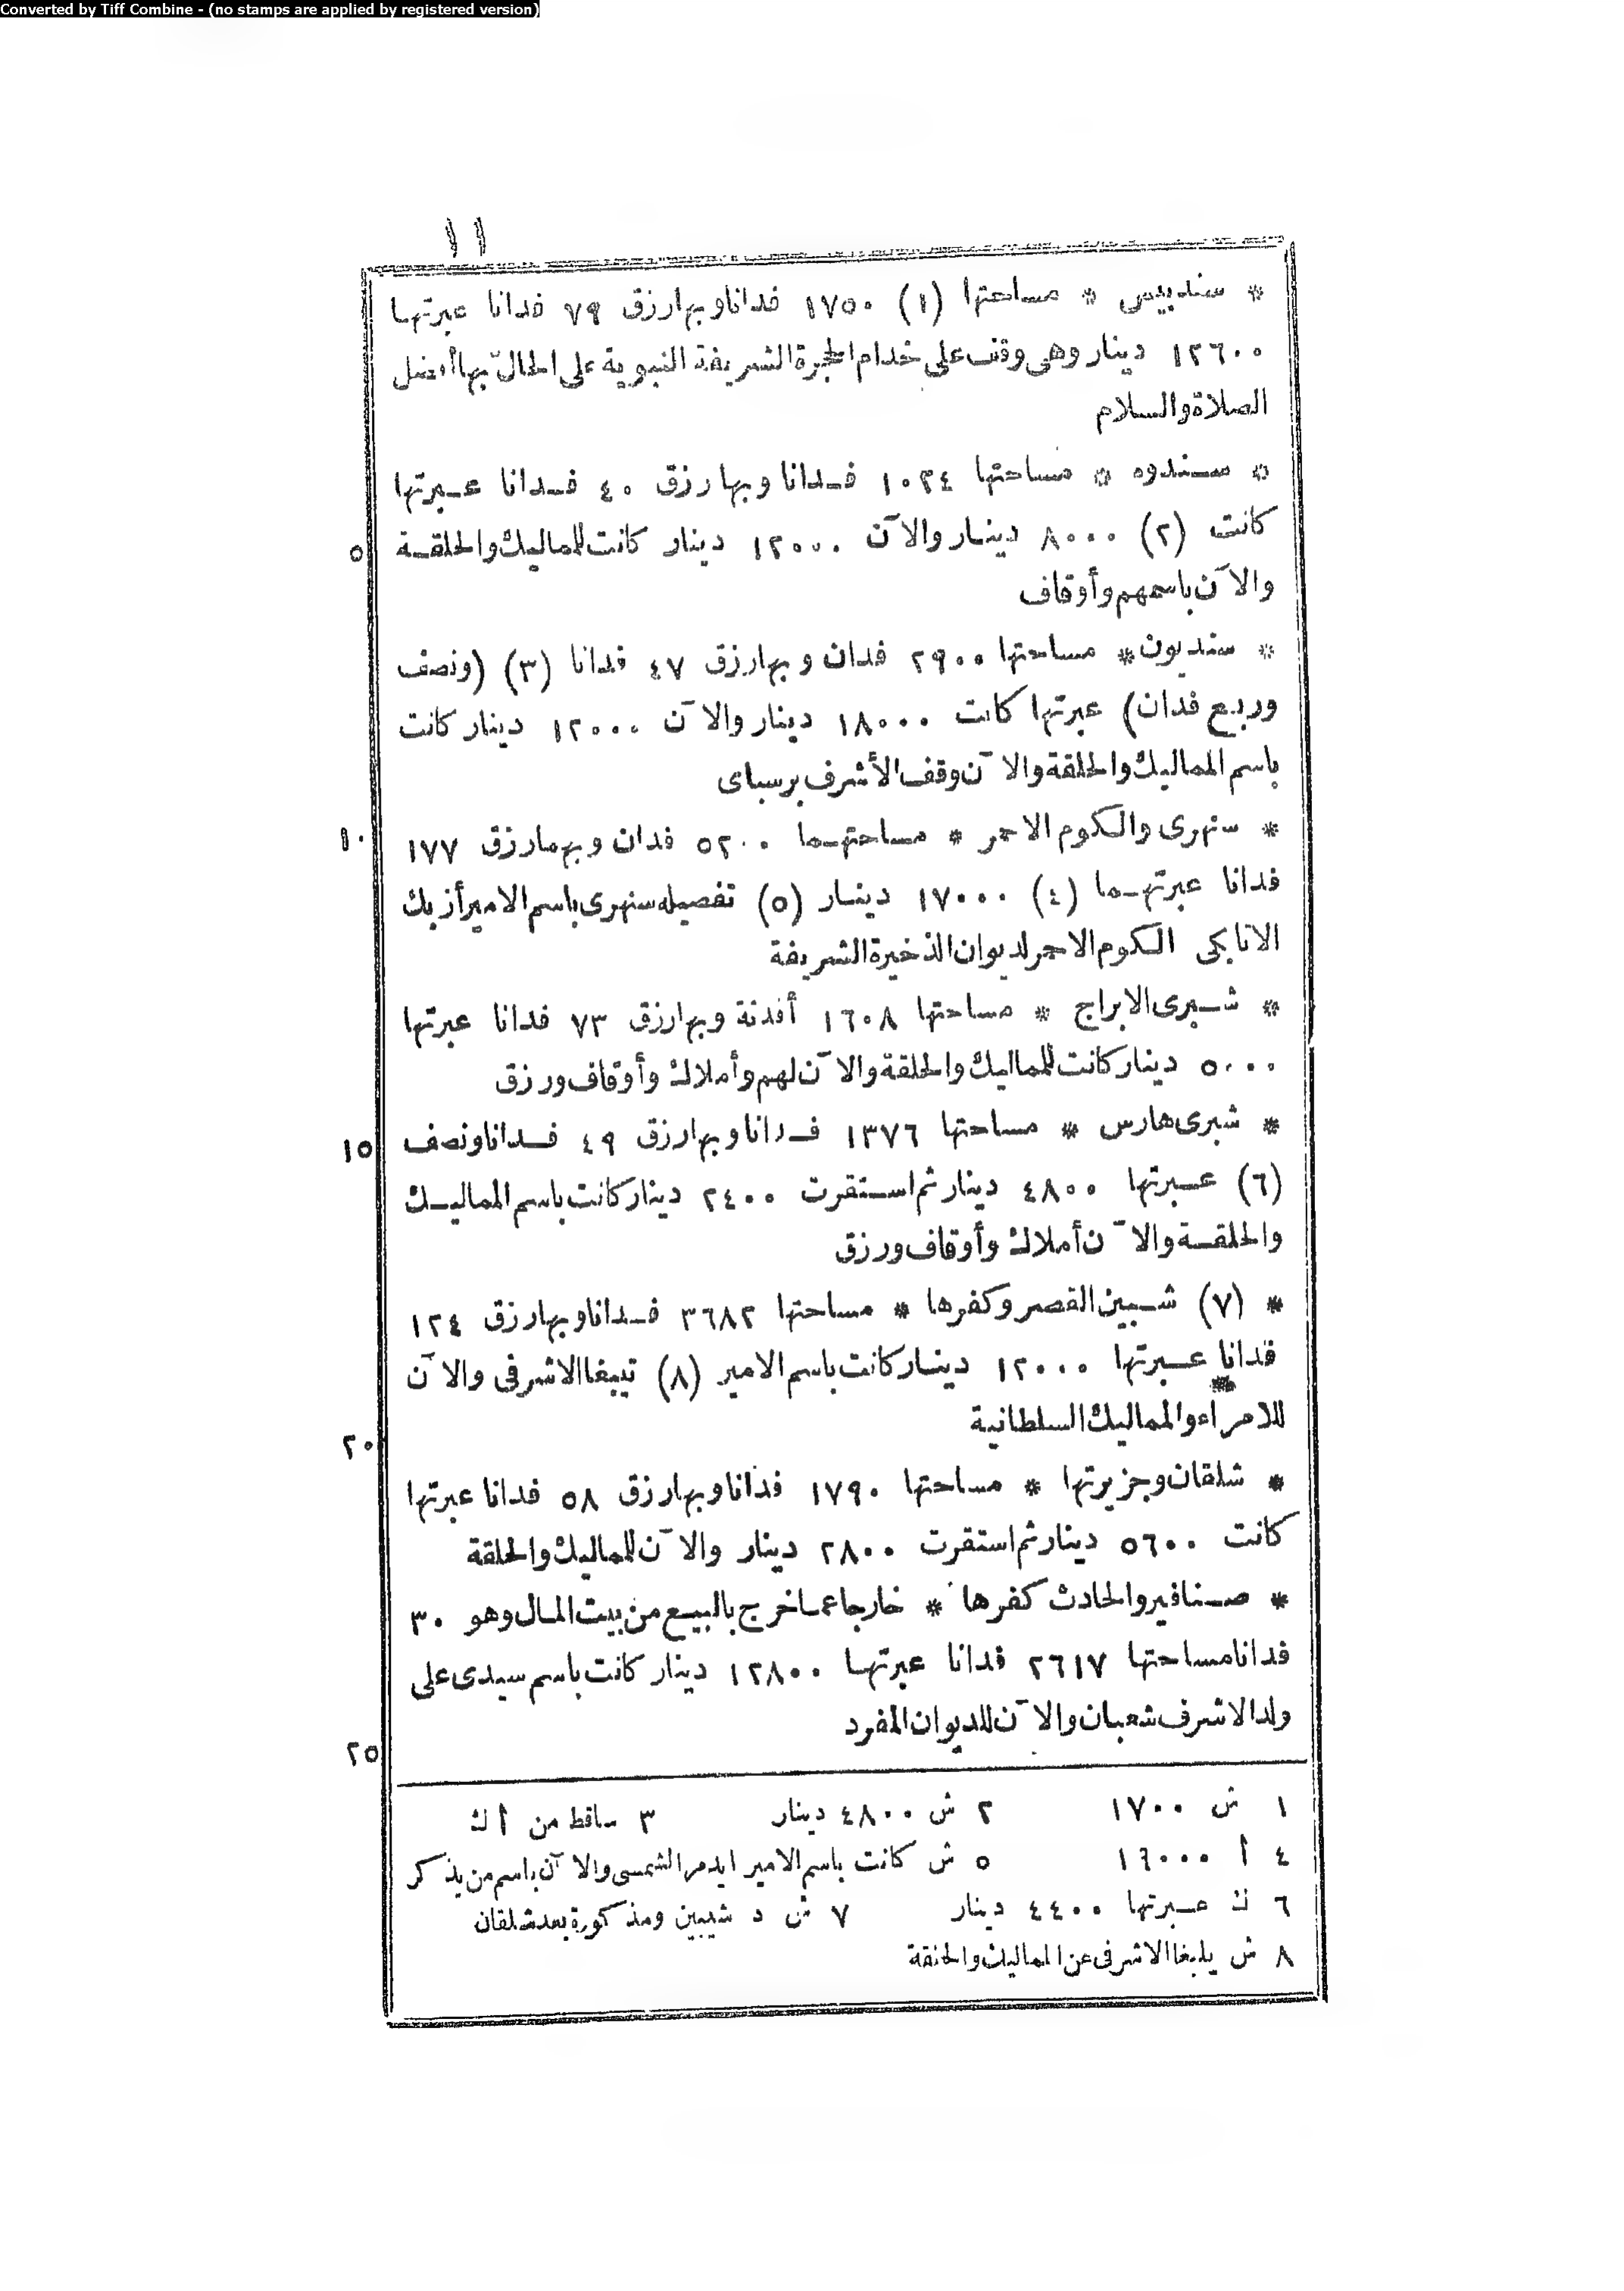 Converted by Tiff Combine - (no stamps are applied by registered version)
١١
* سندبيس * مساحتها (١) ١٧٥٠ فدانا وبها رزق ٧٩ فدانا عبرتها
١٢٦٠٠ دينار وهى وقف على خدام الحجرة الشريفة النبوية على الحال بها أفضل
الصلاة والسلام
* سندوه * مساحتها ١٠٢٤ فدانا وبها رزق ٤٠ فدانا عبرتها
كانت (٢) ٨٠٠٠ دينار والآن ١٢٠٠٠ دينار كانت للماليك والحلقة
٥
والآن باسمهم وأوقاف
* سنديون * مساحتها ٢٩٠٠ فدان وبها رزق ٤٧ فدانا (٣) (ونصف
وربع فدان) عبرتها كانت ١٨٠٠٠ دينار والآن ١٢٠٠٠ دينار كانت
باسم المماليك والحلقة والآن وقف الأشرف برسباى
* سنهرى والكوم الاحمر * مساحتهما ٥٢٠٠ فدان وبهما رزق ١٧٧
١٠
فدانا عبرتهما (٤) ١٧٠٠٠ دينار (٥) تفصيله سنهرى باسم الامير أزبك
الاتابكى الكوم الاحمر لديوان الذخيرة الشريفة
* شبرى الابراج * مساحتها ١٦٠٨ أفدنة وبها رزق ٧٣ فدانا عبرتها
٥٠٠٠ دينار كانت للمماليك والحلقة والآن لهم وأملاك وأوقاف ورزق
* شبرى هارس * مساحتها ١٣٧٦ فدانا وبها رزق ٤٩ فدانا ونصف
١٥
(٦) عبرتها ٤٨٠٠ دينار ثم استقرت ٢٤٠٠ دينار كانت باسم المماليك
والحلقة والآن أملاك وأوقاف ورزق
* (٧) شبين القصر وكفرها * مساحتها ٣٦٨٢ فدانا وبها رزق ١٢٤
فدانا عبرتها ١٢٠٠٠ دينار كانت باسم الامير (٨) تيبغا الاشرفى والآن
للامراء والمماليك السلطانية
٢٠
* شلقان وجزيرتها * مساحتها ١٧٩٠ فدانا وبها رزق ٥٨ فدانا عبرتها
كانت ٥٦٠٠ دينار ثم استقرت ٢٨٠٠ دينار والآن للماليك والحلقة
* صنافير والحادث كفرها * خارجا عما خرج بالبيع من بيت المال وهو ٣٠
فدانا مساحتها ٢٦١٧ فدانا عبرتها ١٢٨٠٠ دينار كانت باسم سيدى على
ولد الاشرف شعبان والآن للديوان المفرد
٢٥
١ ش ١٧٠٠ ٢ ش ٤٨٠٠ دينار ٣ ساقط من أ ك
٤ أ ١٦٠٠٠ ٥ ش كانت باسم الامير ايدمر الشمسى والآن باسم من يذكر
٦ ك عبرتها ٤٤٠٠ دينار ٧ ش د شيبين ومذكورة بعد شلقان
٨ ش يلبغا الاشرفى عن المماليك والحلقة